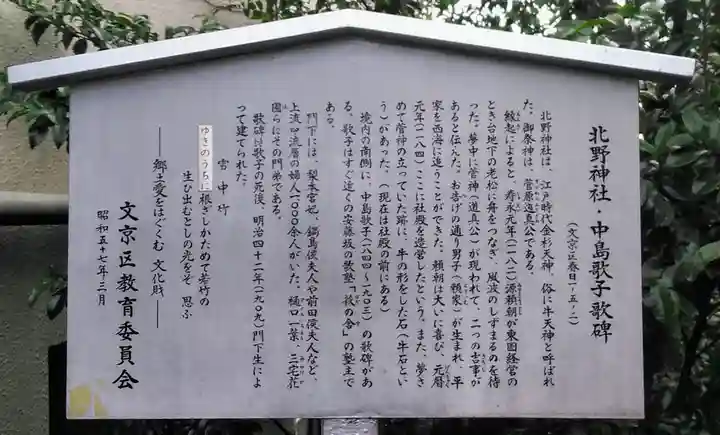 北野神社・中島歌子歌碑
(文京区春日一-五-二)
北野神社は、江戸時代金杉天神、俗に牛天神と呼ばれ
た。御祭神は、菅原道真公である。
縁起によると、寿永元年(一一八二)源頼朝が東国経営の
とき台地下の老松に舟をつなぎ、風波のしずまるのを待
った。夢中に菅神(道真公)が現われて、二つの吉事が
あると伝えた。お告げの通り男子(頼家)が生まれ、平
家を西海に追うことができた。頼朝は大いに喜び、元暦
元年(一一八四)ここに社殿を造営したという。また、夢さ
めて菅神の立っていた跡に、牛の形をした石(牛石とい
う)があった。(現在は社殿の前にある)
境内の南側に、中島歌子(一八四四-一九〇三)の歌碑があ
る。歌子はすぐ近くの安藤坂の歌塾「萩の舎」の塾主で
ある。
門下には、梨本宮妃、鍋島侯夫人や前田侯夫人など、
上流中流層の婦人一〇〇〇余人がいた。樋口一葉、三宅花
圃らはその門弟である。
歌碑は歌子の死後、明治四十二年(一九〇九)門下生によ
って建てられた。
雪中竹
ゆきのうちに根ざしかためて若竹の
生ひ出むとしの光をぞ思ふ
──郷土愛をはぐくむ文化財──
文京区教育委員会
昭和五十七年三月